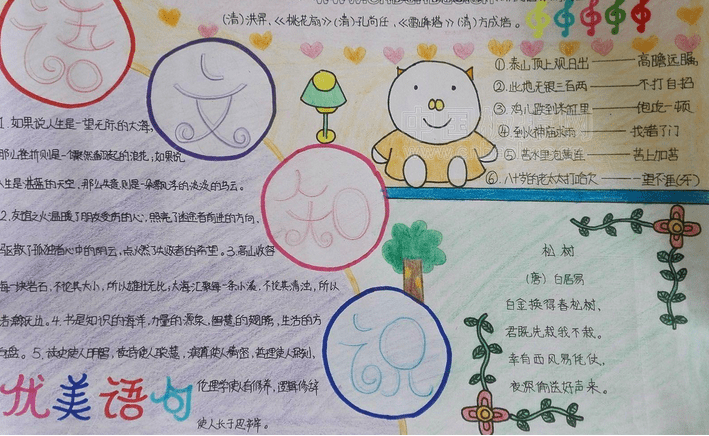 (清)洪昇、《桃花扇》(清)孔尚任、《雷峰塔》(清)方成培。
语
文
知
识
①.泰山顶上观日出——高瞻远瞩
②.此地无银三百两——不打自招
③.鸡儿跌到米缸里——饱吃一顿
④.到火神庙求雨——找错了门
⑤.苦水里泡黄连——苦上加苦
⑥.八十岁的老太太打哈欠——一望无涯(牙)
1.如果说人生是一望无际的大海,
那么挫折则是一个骤然翻起的浪花;如果说
人生是湛蓝的天空,那么失意则是一朵飘浮的淡淡的乌云。
2.友谊之火温暖了朋友受伤的心,照亮了迷途者前进的方向,
驱散了孤独者心中的阴云,点燃了失败者的希望。3.高山收容
每一块岩石,不论其大小,所以雄壮无比;大海汇聚每一条小溪,不论其清浊,所以
浩瀚无边。4.书是知识的海洋,力量的源泉,智慧的翅膀,生活的方
向盘。5.读史使人明智,读诗使人灵慧,演算使人精密,哲理使人深刻,
伦理学使人有修养,逻辑修辞
使人长于思辨。
优美语句
松树
(唐)白居易
白金换得青松树,
君既先栽我不栽。
幸有西风易凭仗,
夜深偷送好声来。